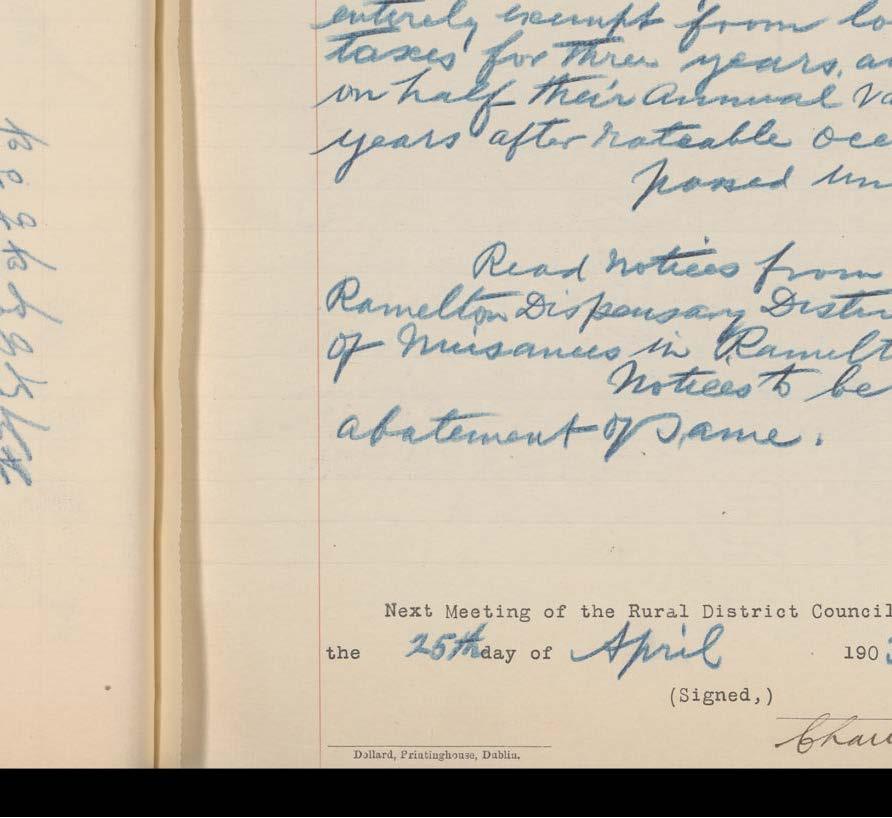 entirely exempt from lo
taxes for three years, an
on half their Annual Va
years after rateable occ
passed un
Read notices from
Ramelton Dispensary Distri
of Nuisances in Ramelt
Notices to be
abatement of Same.
Next Meeting of the Rural District Council
the 25th day of April 190
(Signed,)
Chair
Dollard, Printinghouse, Dublin.